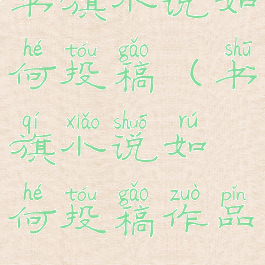 书旗小说如
hé tóu gǎo shū
何投稿（书
qí xiǎo shuō rú
旗小说如
hé tóu gǎo zuò pǐn
何投稿作品